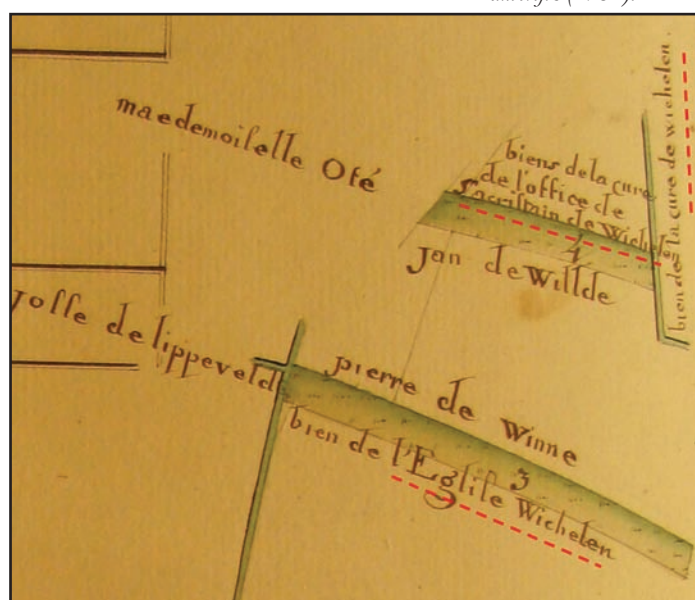 maedemoiselle Oté
biens de la cure
de l'office de
Sacristain de Wichelen
4
jan de Willde
bien de la cure de wichelen
josse de lippeveld
pierre de Winne
3
bien de l'Eglise Wichelen